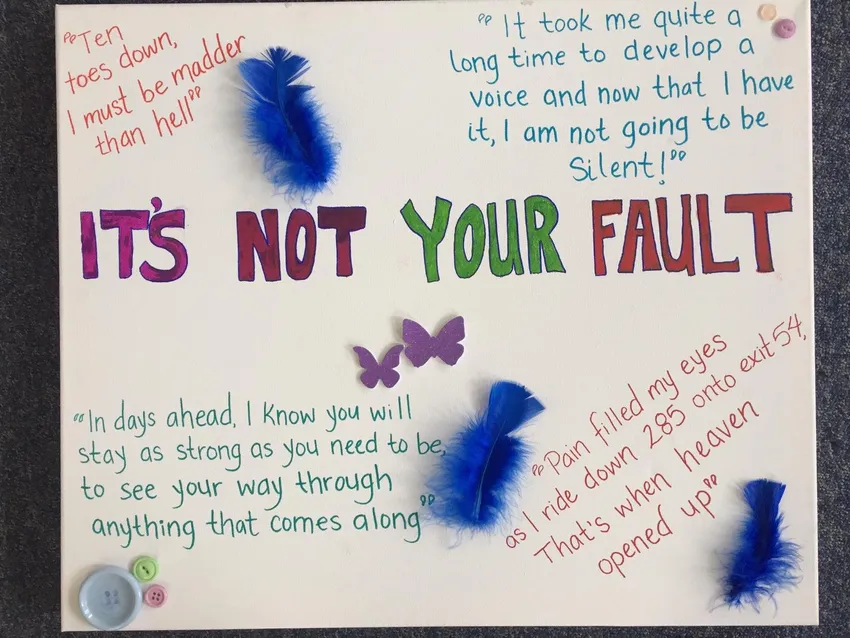 "Ten
toes down,
I must be madder
than hell"
"It took me quite a
long time to develop a
voice and now that I have
it, I am not going to be
Silent!"
IT'S NOT YOUR FAULT
"In days ahead, I know you will
stay as strong as you need to be,
to see your way through
anything that comes along"
"Pain filled my eyes
as I ride down 285 onto exit 54,
That's when heaven
opened up"